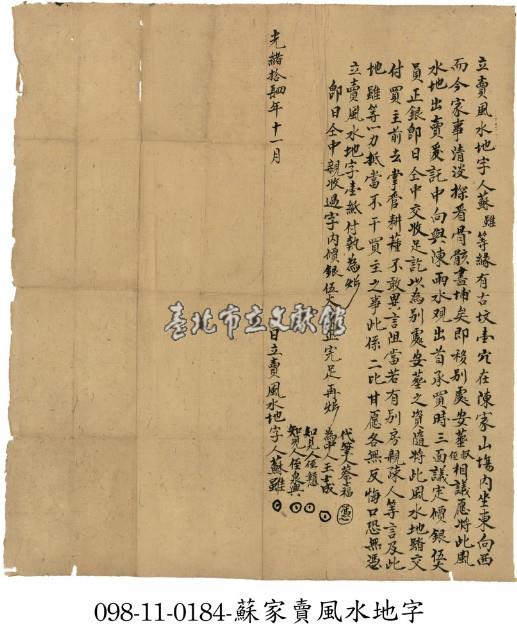 立賣風水地字人蘇雖等緣有古坟壹穴在陳家山塲內坐東向西
而今家事清淡採看骨骸盡埔矣即移別處安葬叔侄相議愿將此風
水地出賣爰託中向與陳雨水观出首承買時三面議定價銀伍大
員正銀即日仝中交收足訖以為別處安葬之資隨將此風水地踏交
付買主前去掌管耕種不敢異言阻當若有別房親疎人等言及此
地雖等一力抵當不干買主之事此係二比甘愿各無反悔口恐無憑
立賣風水地字壹紙付執為炤
即日仝中親收過字內價銀伍大正完足再炤
代筆人蔡福
為中人王成
知見人侄
知見人侄泉興
光緒拾肆年十一月 日立賣風水地字人蘇雖
臺北市立文獻館
098-11-0184-蘇家賣風水地字